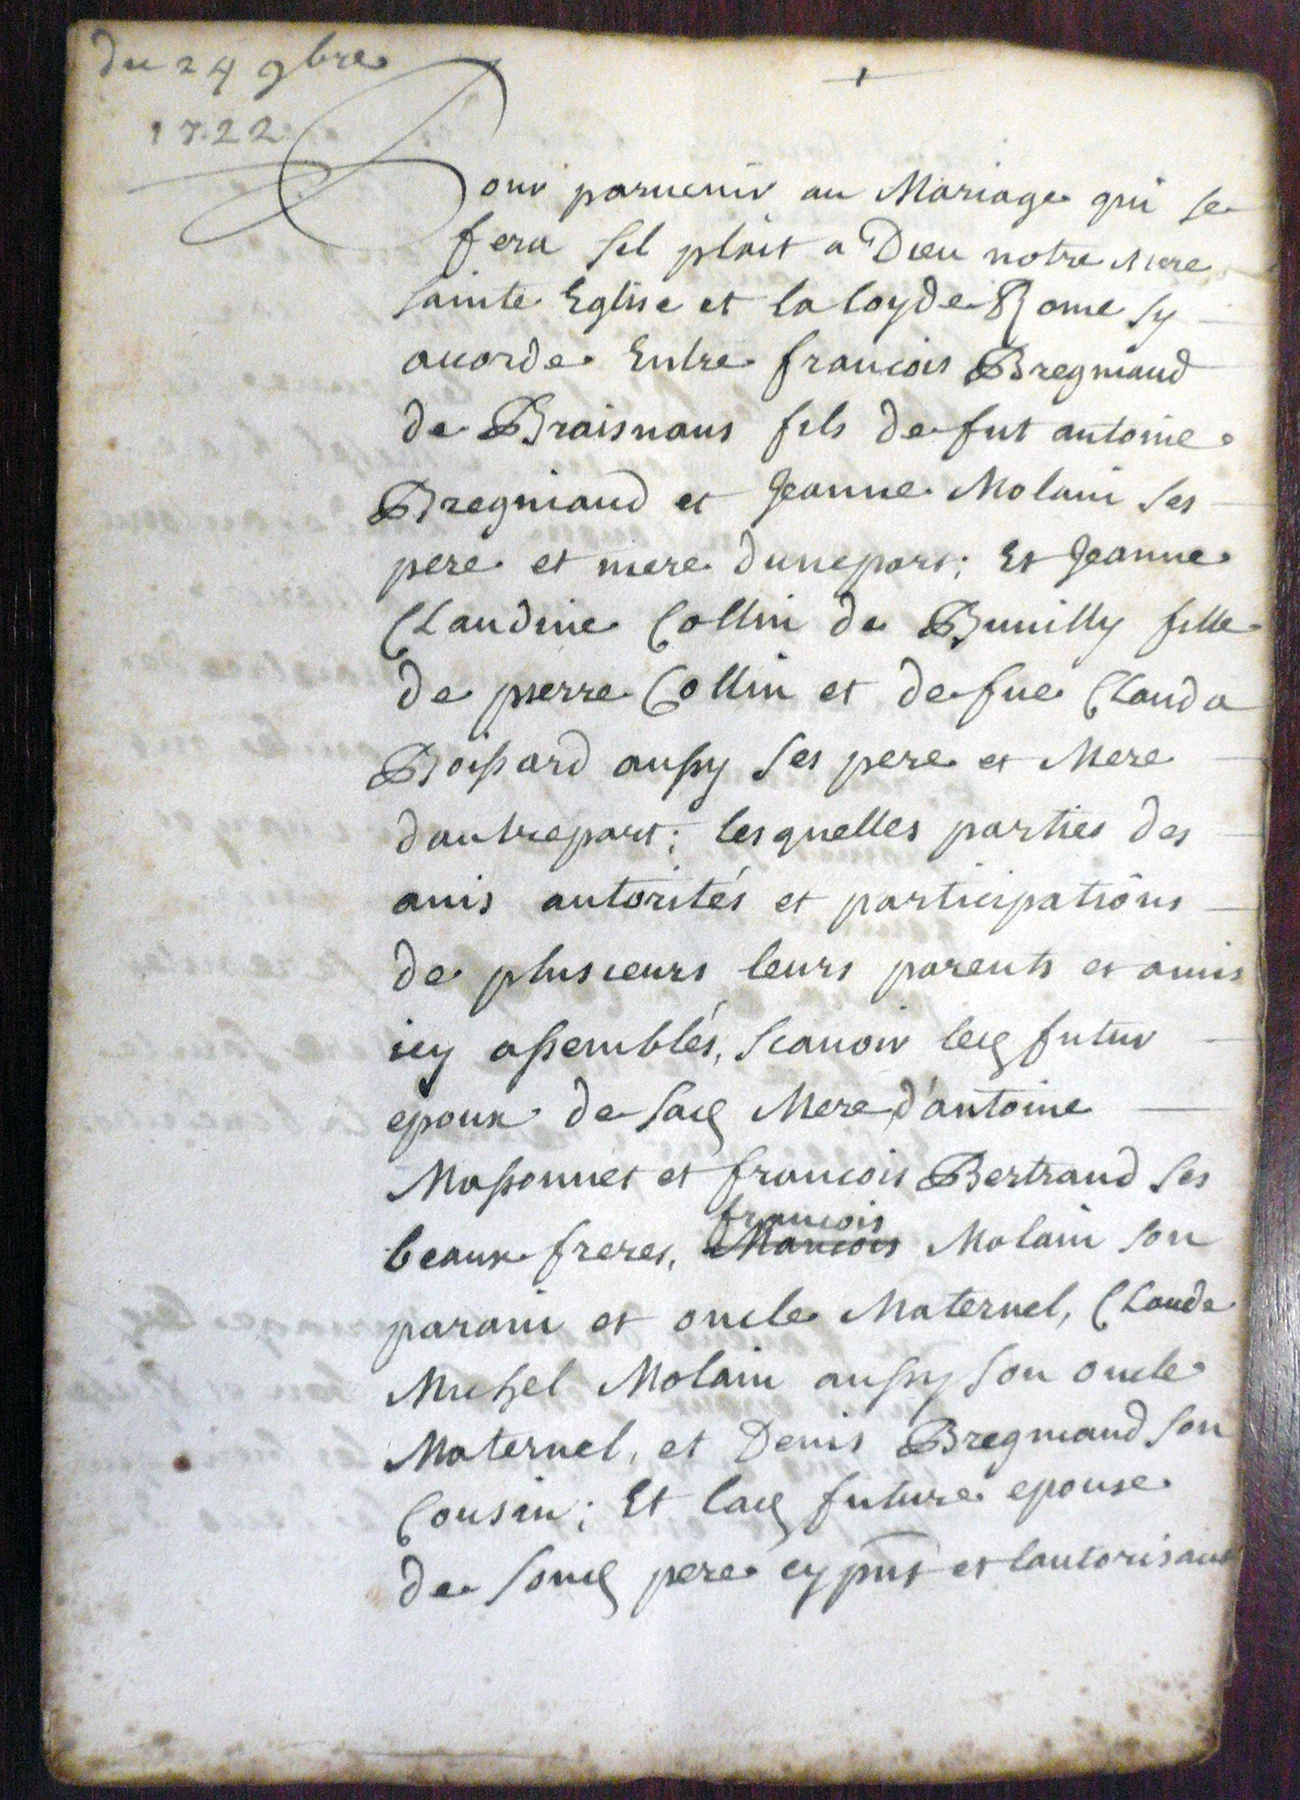 du 24 9bre
1722
Pour paruenir au Mariage qui se
fera sil plait a Dieu notre Mere
sainte Eglise et la loy de Rome sy
acorde Entre francois Bregniaud
de Braisnans fils de fut antoine
Bregniaud et Jeanne Molain ses
pere et mere dunepart; Et Jeanne
Claudine Collin de Buuilly fille
de pierre Collin et de fue Clauda
Boissard aussy ses pere et Mere
dautrepart; lesquelles parties des
auis autorités et participations
de plusieurs leurs parents et amis
icy assemblés, scauoir led futur
epoux de sad Mere d'antoine
Massonnet et francois Bertrand ses
beaux freres, francois Molain son
parain et oncle Maternel, Claude
Michel Molain aussy son oncle
Maternel, et Denis Bregniaud son
Cousin; Et lad future epouse
de sond pere cy pnt et lautorisant